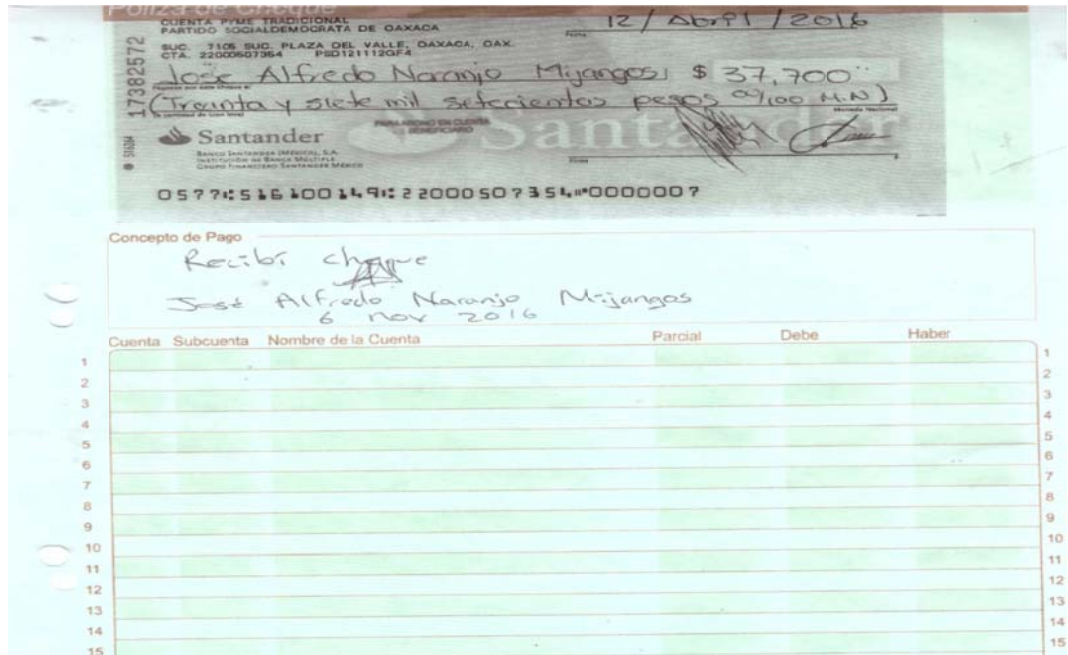 Poliza de Cheque
CUENTA PYME TRADICIONAL
PARTIDO SOCIALDEMOCRATA DE OAXACA
12/Abril/2016
Fecha
SUC. 7105 SUC. PLAZA DEL VALLE, OAXACA, OAX.
CTA. 22000507354 PSD121112QF4
17382572
Jose Alfredo Naranjo Mijangos $ 37,700
(Treinta y siete mil setecientos pesos 00/100 M.N)
Moneda Nacional
PARA ABONO EN CUENTA
BENEFICIARIO
Santander
Santander
BANCO SANTANDER (MÉXICO), S.A.
INSTITUCIÓN DE BANCA MÚLTIPLE
GRUPO FINANCIERO SANTANDER MÉXICO
Firma
0577 516100149 22000507354 0000007
Concepto de Pago
Recibí cheque
José Alfredo Naranjo Mijangos
6 nov 2016
Cuenta Subcuenta Nombre de la Cuenta Parcial Debe Haber
1 1
2 2
3 3
4 4
5 5
6 6
7 7
8 8
9 9
10 10
11 11
12 12
13 13
14 14
15 15